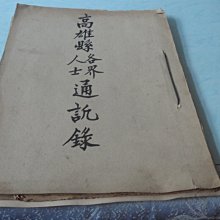 高雄縣各界人士通訊錄